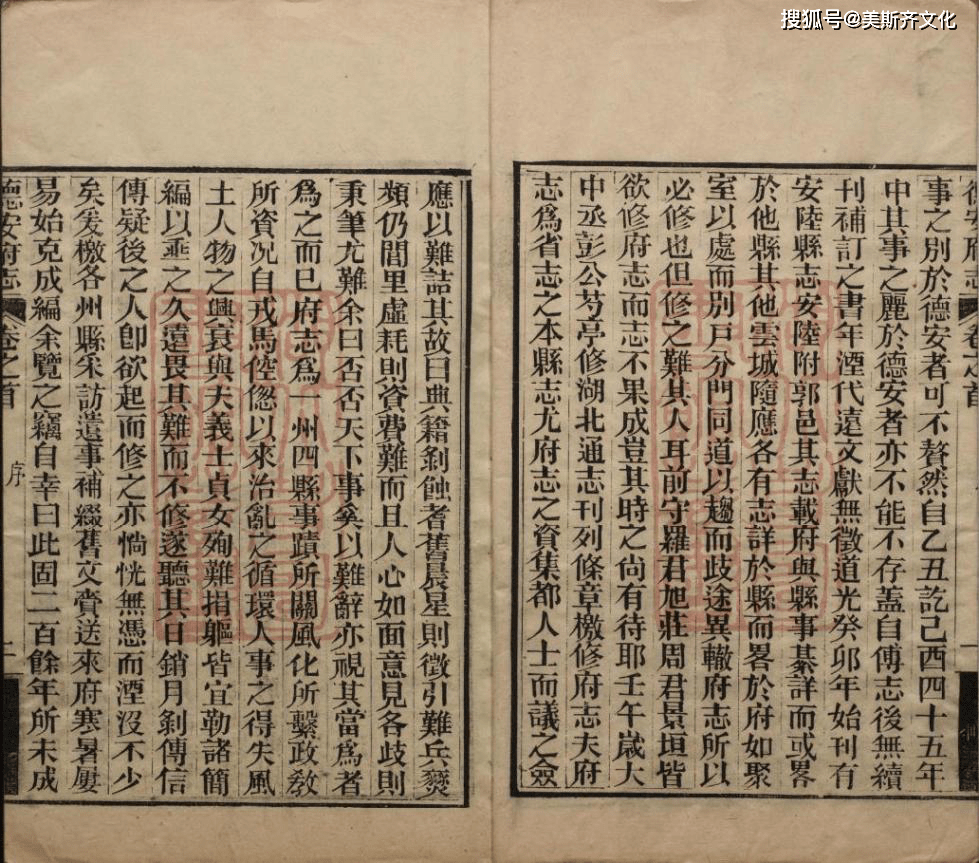 搜狐号@美斯齐文化
德安府志 卷之首 一
事之別於德安者可不贅然自乙丑訖己酉四十五年
中其事之麗於德安者亦不能不存蓋自傳志後無續
刊補訂之書年湮代遠文獻無徵道光癸卯年始刊有
安陸縣志安陸附郭邑其志載府與縣事綦詳而或畧
於他縣其他雲城隨應各有志詳於縣而畧於府如聚
室以處而別戸分門同道以趨而歧途異轍府志所以
必修也但修之難其人耳前守羅君旭莊周君景垣皆
欲修府志而志不果成豈其時之尚有待耶壬午嵗大
中丞彭公芍亭修湖北通志刊列條章檄修府志夫府
志爲省志之本縣志尤府志之資集都人士而議之僉
應以難詰其故曰典籍剝蝕耆舊晨星則徵引難兵燹
頻仍閭里虛耗則資費難而且人心如面意見各歧則
秉筆尤難余曰否否天下事奚以難辭亦視其當爲者
爲之而已府志爲一州四縣事蹟所關風化所繫政敎
所資况自戎馬倥傯以來治亂之循環人事之得失風
土人物之興衰與夫義士貞女殉難捐軀皆宜勒諸簡
編以垂之久遠畏其難而不修遂聽其日銷月剝傳信
傳疑後之人卽欲起而修之亦惝恍無憑而湮沒不少
矣爰檄各州縣采訪遺事補綴舊文賫送來府寒暑屢
易始克成編余覽之竊自幸曰此固二百餘年所未成
德安府志 卷之首 序 二